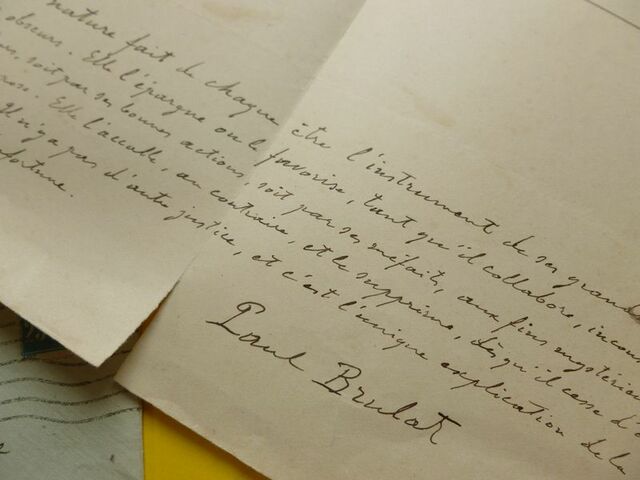 nature fait de chaque être l'instrument de ses grands
obscurs. Elle l'épargne ou le favorise, tant qu'il collabore,
soit par ses bonnes actions, soit par ses méfaits, aux fins
Elle l'accable, au contraire, et le supprime, dès qu'il cesse
Il n'y a pas d'autre justice, et c'est l'unique explication de la
fortune.
Paul Brulat